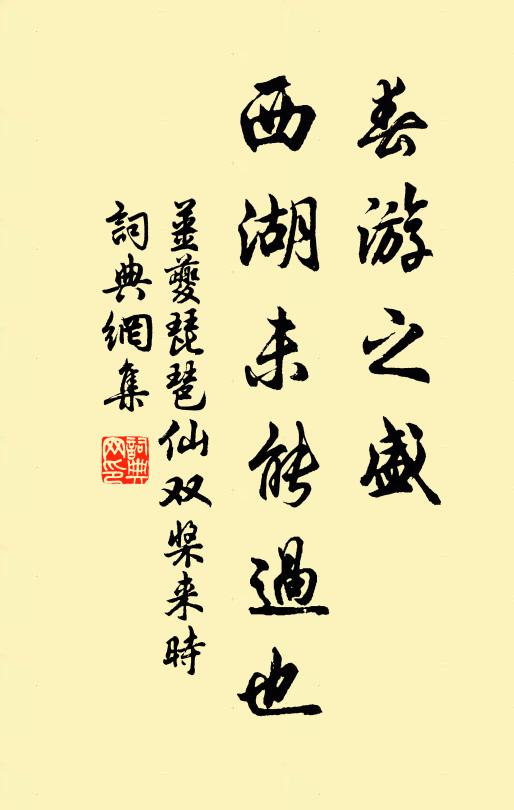 春游之盛
西湖未能過也
姜夔琵琶仙双桨来時
詞典網集
詞典網印